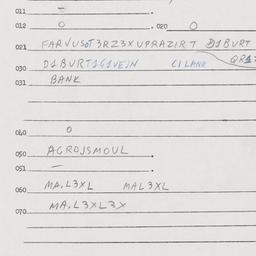 011 –
012 0 . 020 0
021 FARVUSOT3RZ3XUPRAZIRT D1BURT
030 D1BURT1G1VEJN CILANR QR1
031 BANK
040 0
050 AGROJSMOUL .
051 – .
060 MA,L3XL MAL3XL
070 MA,L3XL3X